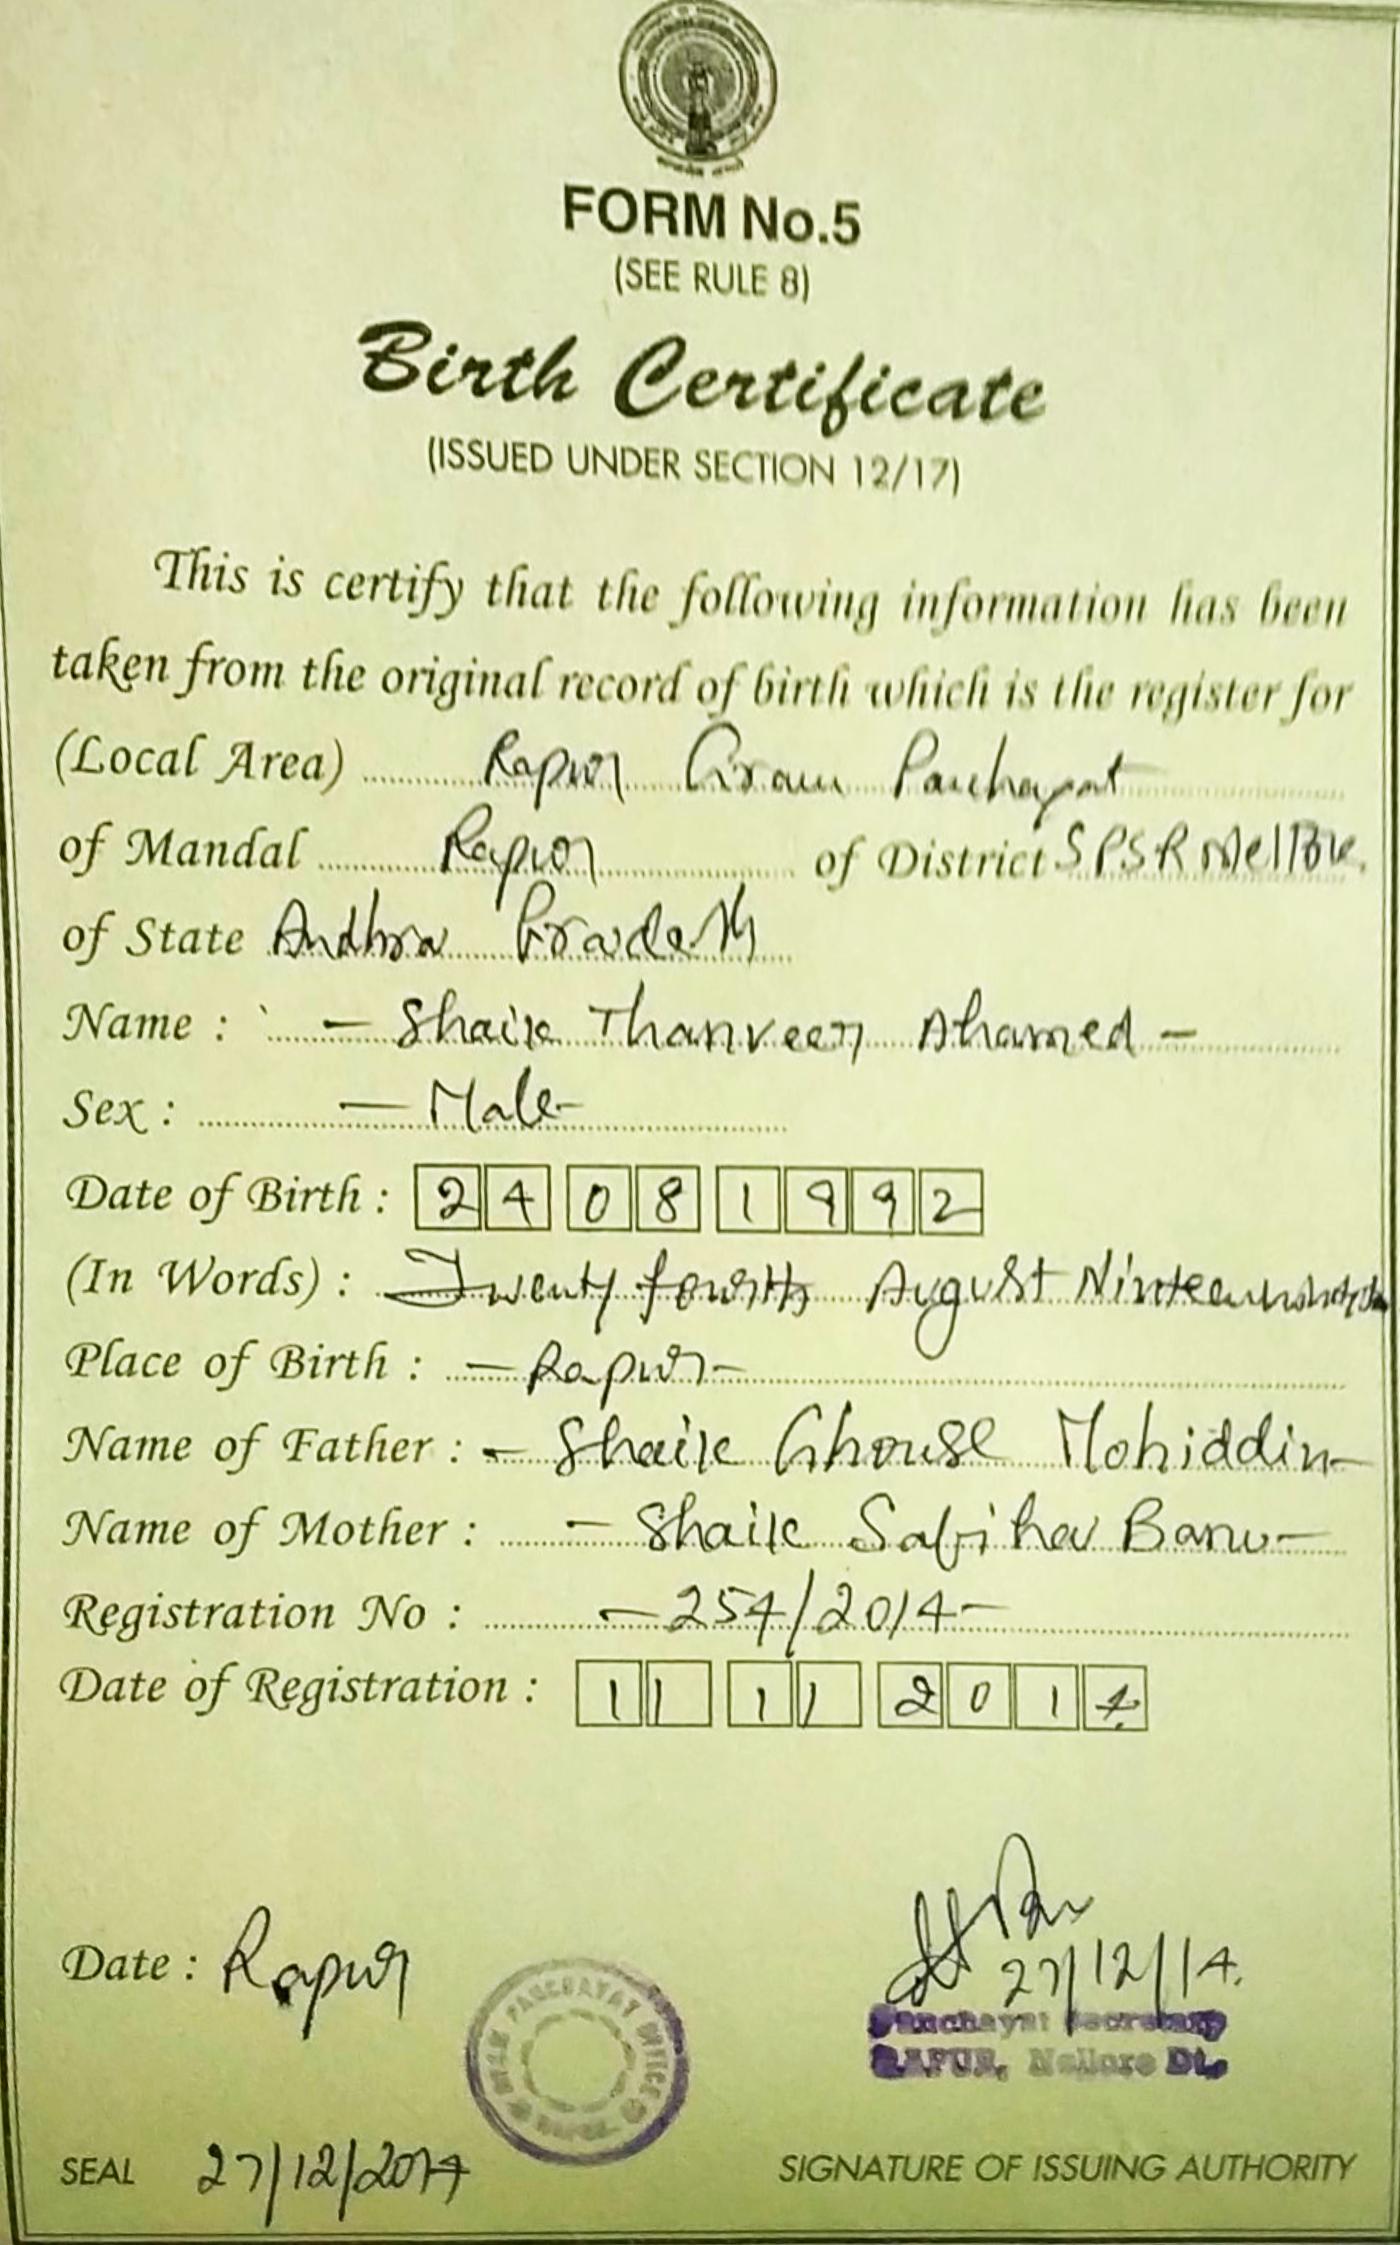 FORM No.5
(SEE RULE 8)
Birth Certificate
(ISSUED UNDER SECTION 12/17)
This is certify that the following information has been
taken from the original record of birth which is the register for
(Local Area) Rapur Gram Panchayat
of Mandal Rapur of District SPSR Nellore.
of State Andhra Pradesh
Name : - Shaik Thanveer Ahamed -
Sex : - Male -
Date of Birth : 24 08 1992
(In Words) : Twenty fourth August
Place of Birth : - Rapur -
Name of Father : - Shaik Ghouse Mohiddin -
Name of Mother : - Shaik Sabiha Banu -
Registration No : - 254/2014 -
Date of Registration : 11 11 2014
27/12/14.
Date : Rapur
PANCHAYAT OFFICE
Panchayat Secretary
RAPUR, Nellore Dt.
SEAL 27/12/2014
SIGNATURE OF ISSUING AUTHORITY